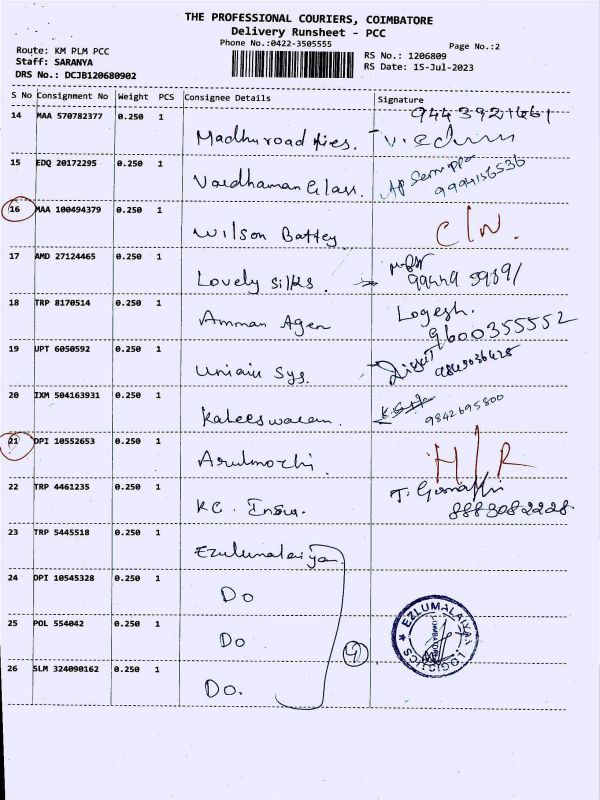 THE PROFESSIONAL COURIERS, COIMBATORE
Delivery Runsheet - PCC
Phone No.:0422-3505555
Page No.:2
Route: KM PLM PCC
Staff: SARANYA
DRS No.: DCJB120680902
RS No.: 1206809
RS Date: 15-Jul-2023
S No Consignment No Weight PCS Consignee Details Signature
14 MAA 570782377 0.250 1 Madhu road lines.
15 EDQ 20172295 0.250 1 Vardhaman Glass. 9994156536
16 MAA 100494379 0.250 1 Wilson Battey C/N.
17 AMD 27124465 0.250 1 Lovely silks.
18 TRP 8170514 0.250 1 Amman Agen Logesh. 9600355552
19 UPT 6050592 0.250 1 Sys.
20 IXM 504163931 0.250 1 Kaleeswaran. 9842695800
21 DPI 10552653 0.250 1 Arulmozhi. H/R
22 TRP 4461235 0.250 1 KC. Insu. 8883082228
23 TRP 5445518 0.250 1 Ezulumalaiyan
24 DPI 10545328 0.250 1 Do
25 POL 554042 0.250 1 Do
26 SLM 324090162 0.250 1 Do.
4
EZLUMALAIYAN LOGISTICS